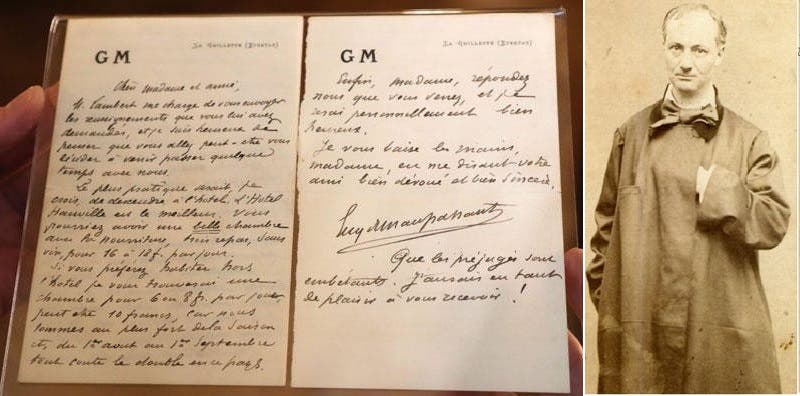 GM LA GUILLETTE (ETRETAT)
Chère madame et amie,
M. Lambert me charge de vous envoyer
les renseignements que vous lui avez
demandés, et je suis heureux de
penser que vous allez peut-être vous
décider à venir passer quelque
temps avec nous.
Le plus pratique serait, je
crois, de descendre à l'hôtel. L'Hotel
Hauville est le meilleur. Vous
pourriez avoir une belle chambre
avec la nourriture, trois repas, sans
vin, pour 16 à 18f. par jour.
Si vous préférez habiter hors
l'hotel je vous trouverais une
chambre pour 6 ou 8 frs. par jour
peut etre 10 francs, car nous
sommes au plus fort de la saison
et, du 1er aout au 1er Septembre
tout coute le double en ce pays.
GM LA GUILLETTE (ETRETAT)
Enfin, madame, répondez
nous que vous venez, et je
serai personnellement bien
heureux.
Je vous baise les mains,
madame, en me disant votre
ami bien dévoué et bien sincère.
Guy de Maupassant
Que les préjugés sont
embêtants. J'aurais eu tant
de plaisir à vous recevoir !